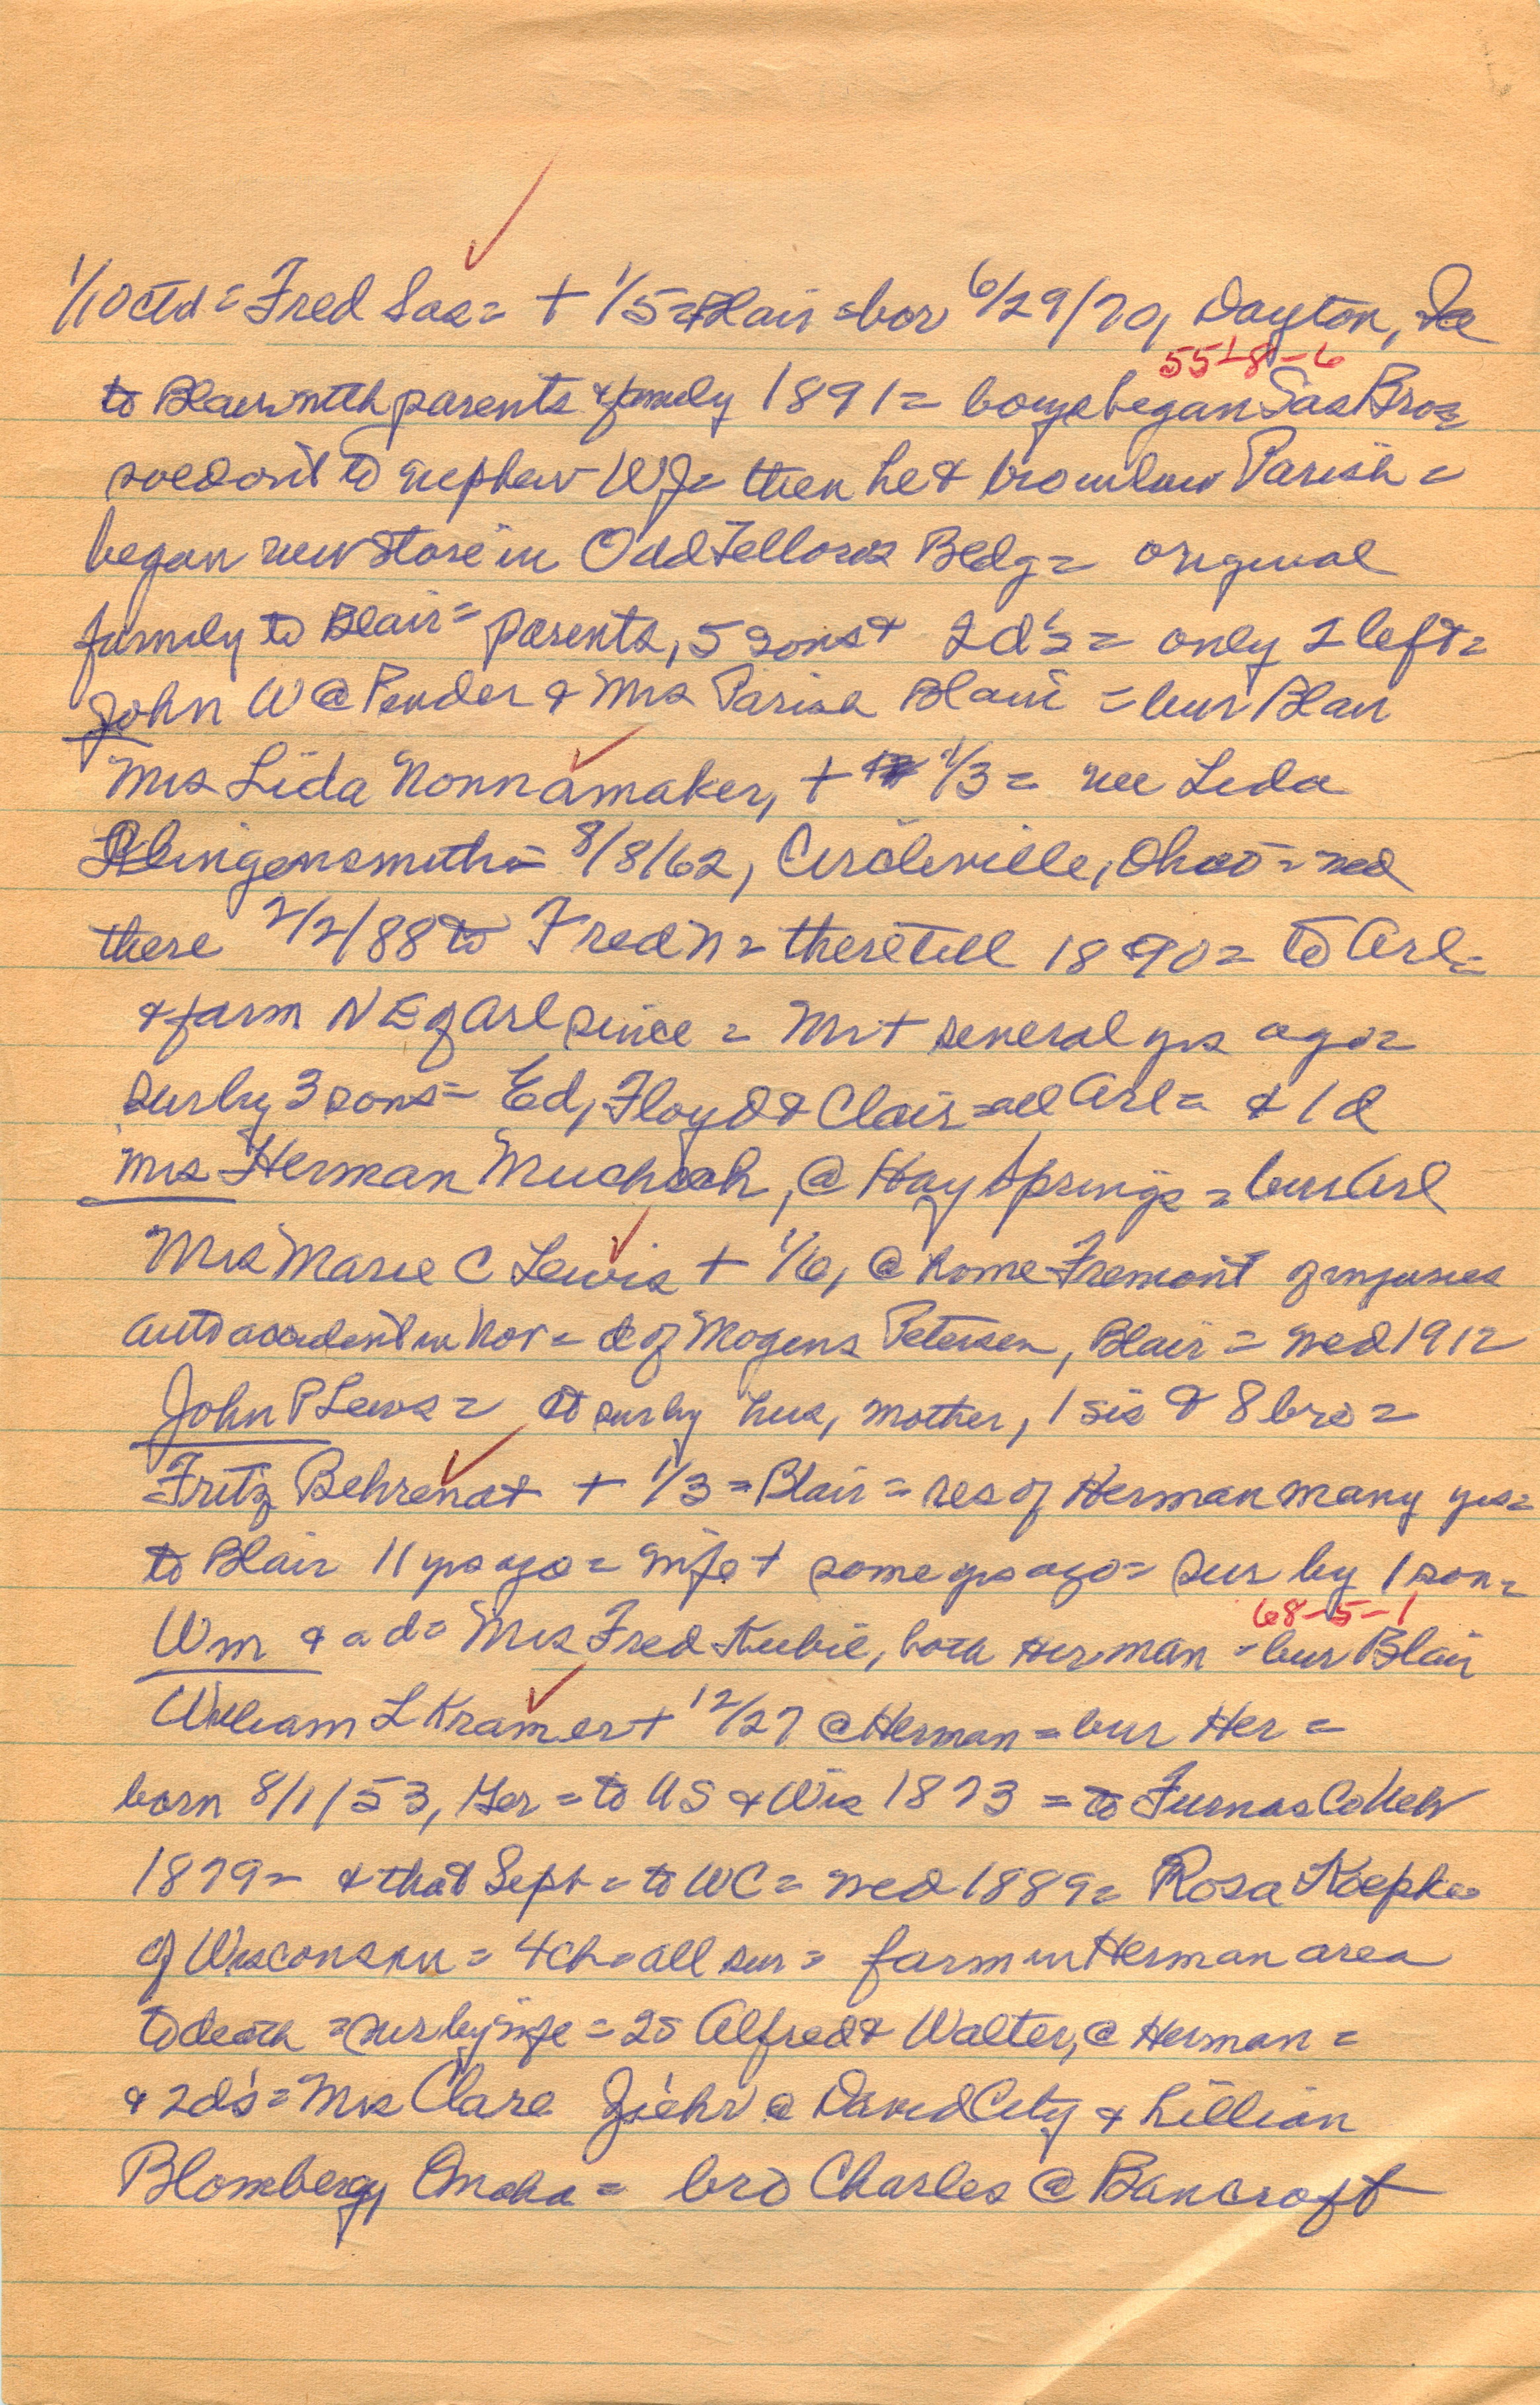 1/10 ctd = Fred Sas = + 1/5 = Blair = bor 6/29/70, Dayton, Ia
55-8-6
to Blair with parents & family 1891 = boys began Sas Bros
sold out to nephew WJ = then he & broinlaw Parish =
began new store in Odd Fellows Bldg = original
family to Blair = parents, 5 sons & 2 d's = only 2 left =
John W @ Pender & Mrs Parish Blair = bur Blair
Mrs Lida Nonnamaker, + 1/3 = nee Lida
Klingensmith = 8/8/62, Circleville, Ohio = med
there 2/2/88 to Fred N = there till 1890 = to Arl =
& farm NE of Arl since = Mr + several yrs ago =
sur by 3 sons = Ed, Floyd & Clair = all Arl = & 1 d
Mrs Herman @ Hay Springs = bur Arl
Mrs Marie C Lewis + 1/6, @ home Fremont of injuries
auto accident in Nov = d of Mogens Petersen, Blair = med 1912
John P Lewis = sur by hus, mother, 1 sis & 8 bro =
Fritz Behrendt + 1/3 = Blair = res of Herman many yrs =
to Blair 11 yrs ago = wife + some yrs ago = sur by 1 son =
68-5-1
Wm & a d = Mrs Fred Kubie, both Herman = bur Blair
William L Kramer + 12/27 @ Herman = bur Her =
born 8/1/53, Ger = to US & Wis 1873 = to Furnas Co Neb
1879 = & that Sept = to WC = med 1889 = Rosa Koepke
of Wisconsin = 4 ch = all sur = farm in Herman area
to death = sur by wife = 2 s Alfred & Walter, @ Herman =
& 2 d's = Mrs Clara @ David City & Lillian
Blomberg, Omaha = bro Charles @ Bancroft